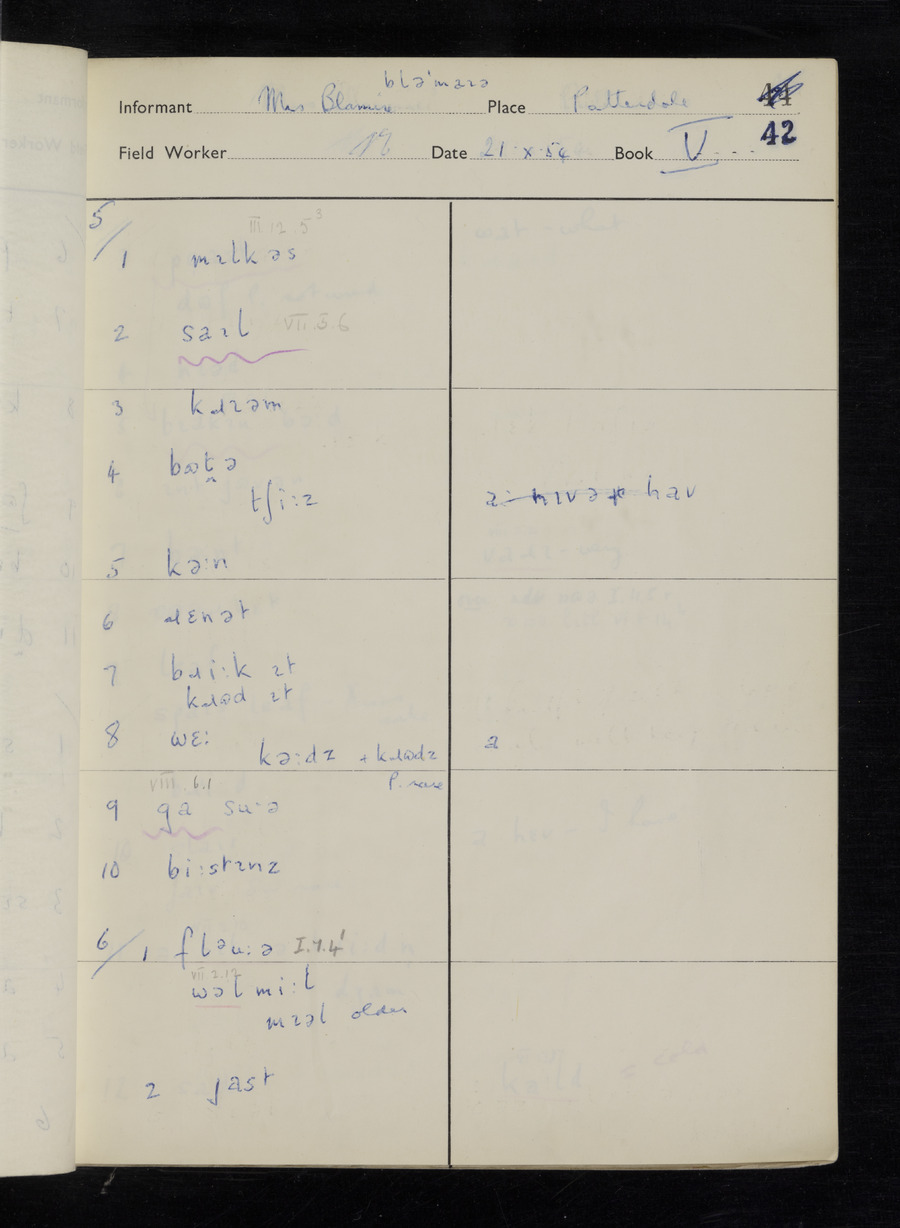 blə'maɪə
Informant Mrs Blamire Place Patterdale 44
42
Field Worker Date 21·X·54 Book V
5/
III.12.5³
1 mɪlkəs
2 saɪl VII.5.6
3 kɹɪəm
4 bʊt̪ə
tʃi:z
hav
5 kə:n
6 ɹɛnət
7 bɹi:k ɪt
kɹʊd ɪt
8 wɛ: a
kə:dz + kɹʊdz
P. rare
VIII.6.1
9 ga su:ə
10 bi:stɪnz
6/ 1 fləu:ə I.7.4¹
VII.2.12
wəl mi:l
mɪəl older
2 jast